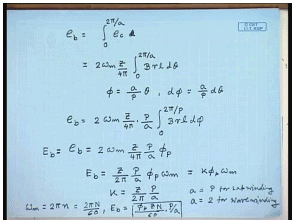 © CET
I.I.T. KGP
e_b = ∫_0^{2π/a} e_c
= 2 ω_m Z/4π ∫_0^{2π/a} B r l dθ
φ = a/P θ , dφ = a/P dθ
e_b = 2 ω_m Z/4π · P/a ∫_0^{2π/P} B r l dφ
E_b = e_b = 2 ω_m Z/4π P/a φ_P
E_b = Z/2π P/a φ_P ω_m = K φ_P ω_m
K = Z/2π P/a
a = P for Lap winding
a = 2 for Wave winding
ω_m = 2πn = 2πN/60 , E_b = φ_P Z N/60 · P/a